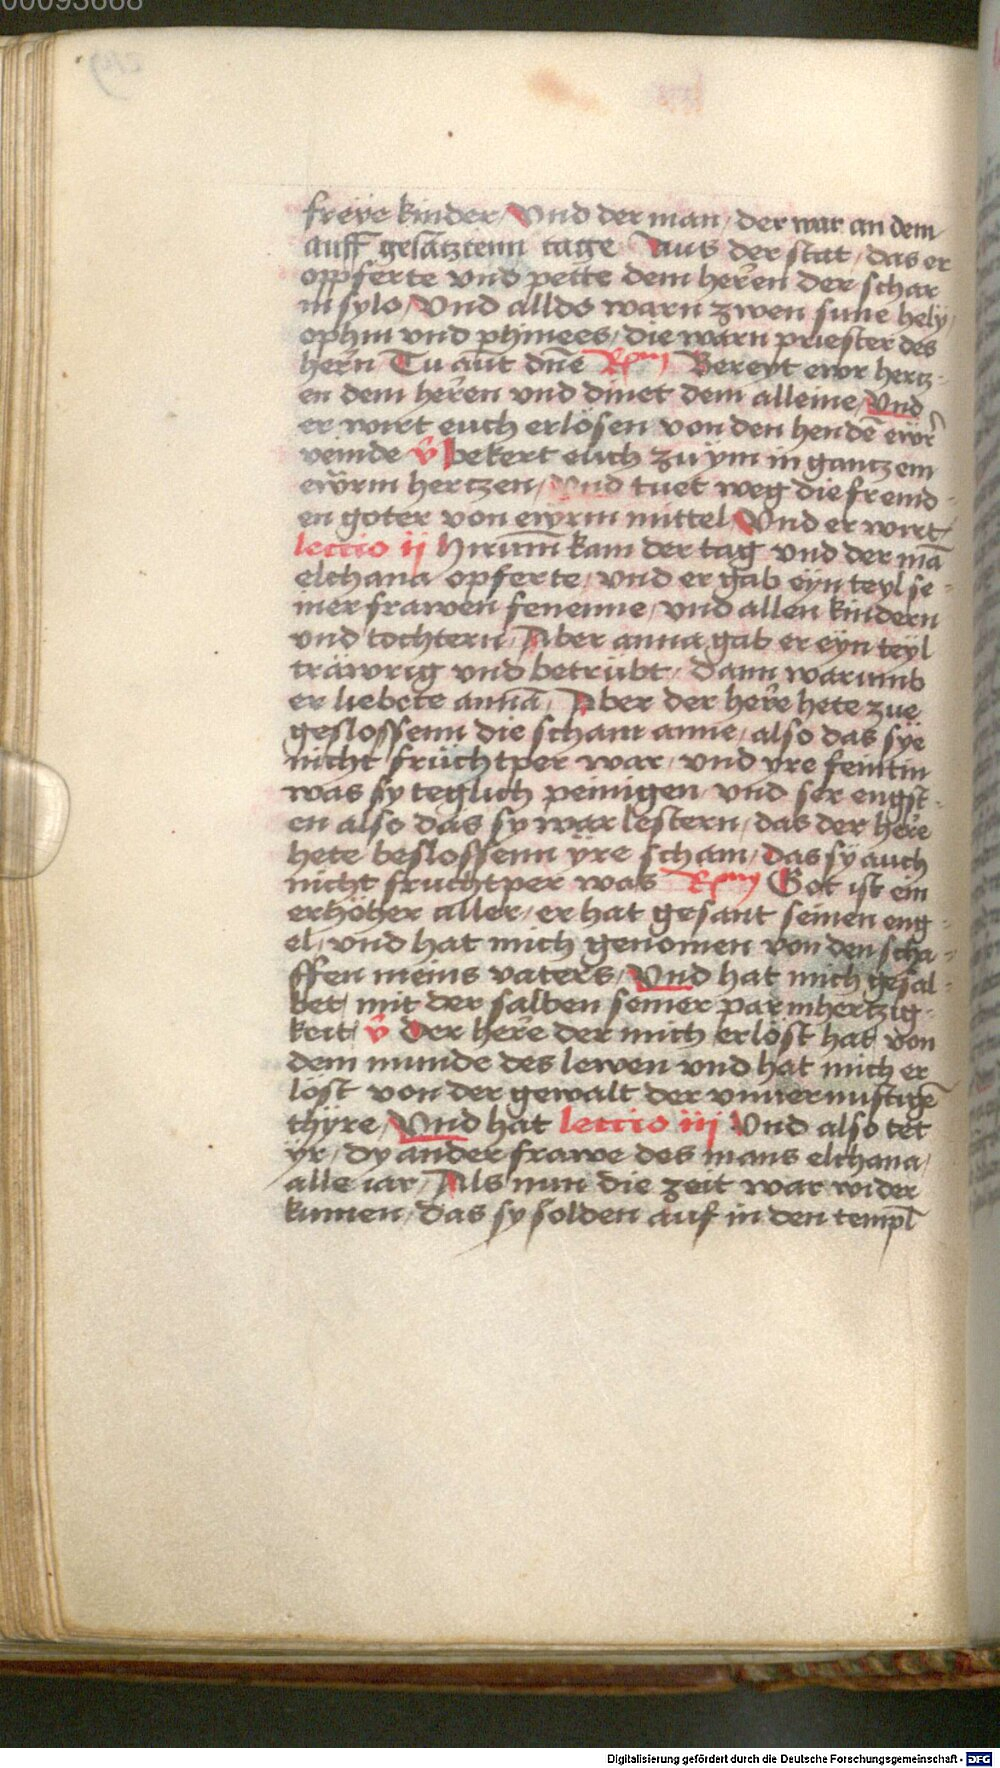 00093668
freÿe kinder / Vnd der man / der war an dem
auff gesatztenn tage Aus der stat / das er
oppferte vnd pette dem herren der schar
in sylo / Vnd alldo warn zwen sune hely /
ophni vnd phinees / die warn priester des
hern̄ Tu aūt dn̄e Rm Bereyt ewr hertz-
en dem herren vnd dinet dem alleine / Vnd
er wirt euch erlösen von den hendē ewr̄
veinde v̄ bekert euch zu ym in gantzem
ewrm hertzen / Vnd tuet weg die fremd-
en goter von ewrm mittel / Vnd er wirt /
leccio ij Hirum̄ kam der tag vnd der mā
elchana opferte / vnd er gab eÿn teyl se-
iner frawen fenenne / vnd allen kindern
vnd tochtern / Aber anna gab er eÿn teÿl
träwrig vnd betrübt / dann warumb
er liebete annā / Aber der herre hete zue
geslossenn die scham anne / also das sÿe
nicht früchtper war / vnd yre feintin
was sy teglich peinigen vnd ser engst-
en also das sy war lestern / das der herre
hete beslossenn ÿre scham / das sÿ auch
nicht fruchtper was Rm Got ist ein
erhöher aller / er hat gesant seinen eng-
el / vnd hat mich genomen von den scha-
ffen meins vaters / Vnd hat mich gesal-
bet mit der salben seiner parmhertzig-
keit v̄ Der herre der mich erlöst hat von
dem munde des lewen vnd hat mich er
löst von der gewalt der vnuernuftigē
thÿre / Vnd hat leccio iij Vnd also tet
yr / dy ander frawe des mans elchana /
alle iar / Als nun die zeit war wider
kumen / das sy solden auf in den templ
Digitalisierung gefördert durch die Deutsche Forschungsgemeinschaft - DFG